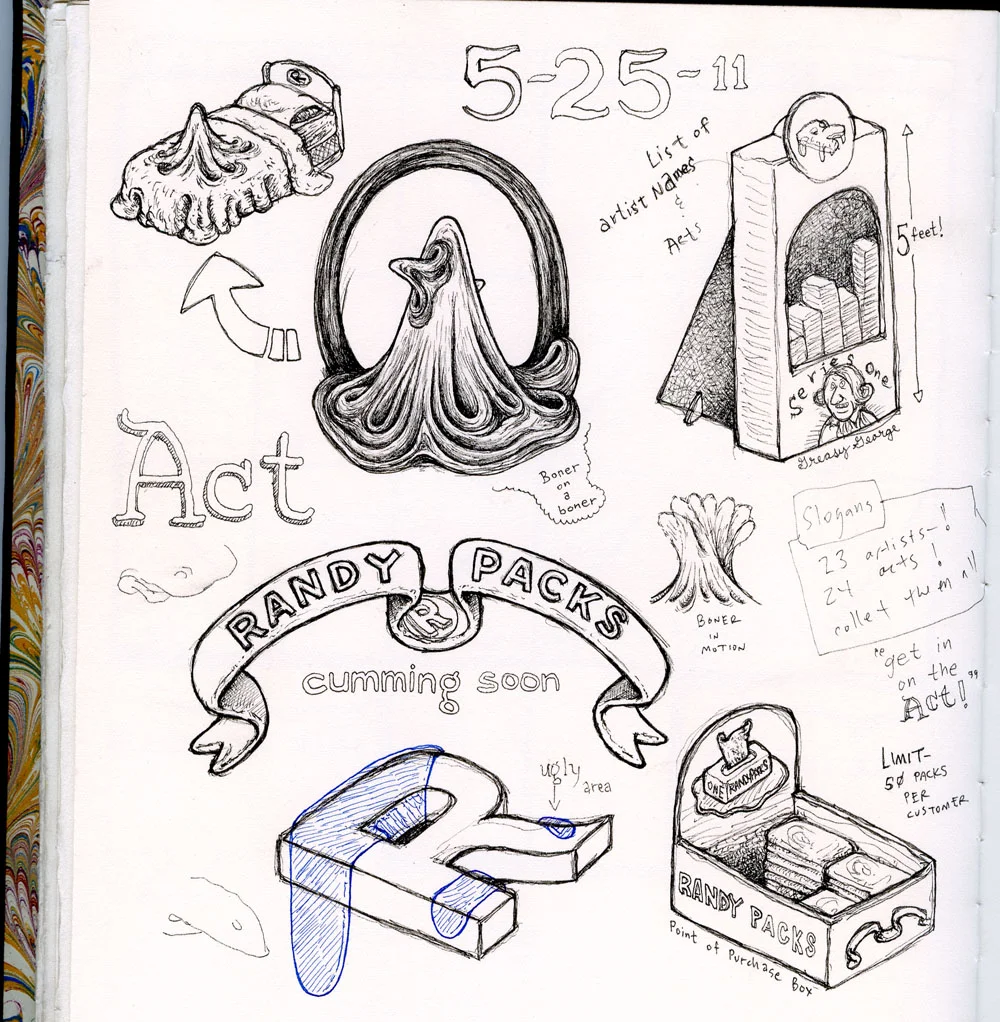 5-25-11
R
List of
artist Names
&
Acts
5 feet!
Series One
Greasy George
Act
Boner
on
a
boner
Slogans
23 artists-!
24 acts!
collet them all
BONER
IN
MOTION
RANDY PACKS
R
cumming soon
"get in
on the
Act!"
LIMIT-
5¢ PACKS
PER
CUSTOMER
ugly
area
R
ONE RANDYPACKS
RANDY PACKS
Point of Purchase Box